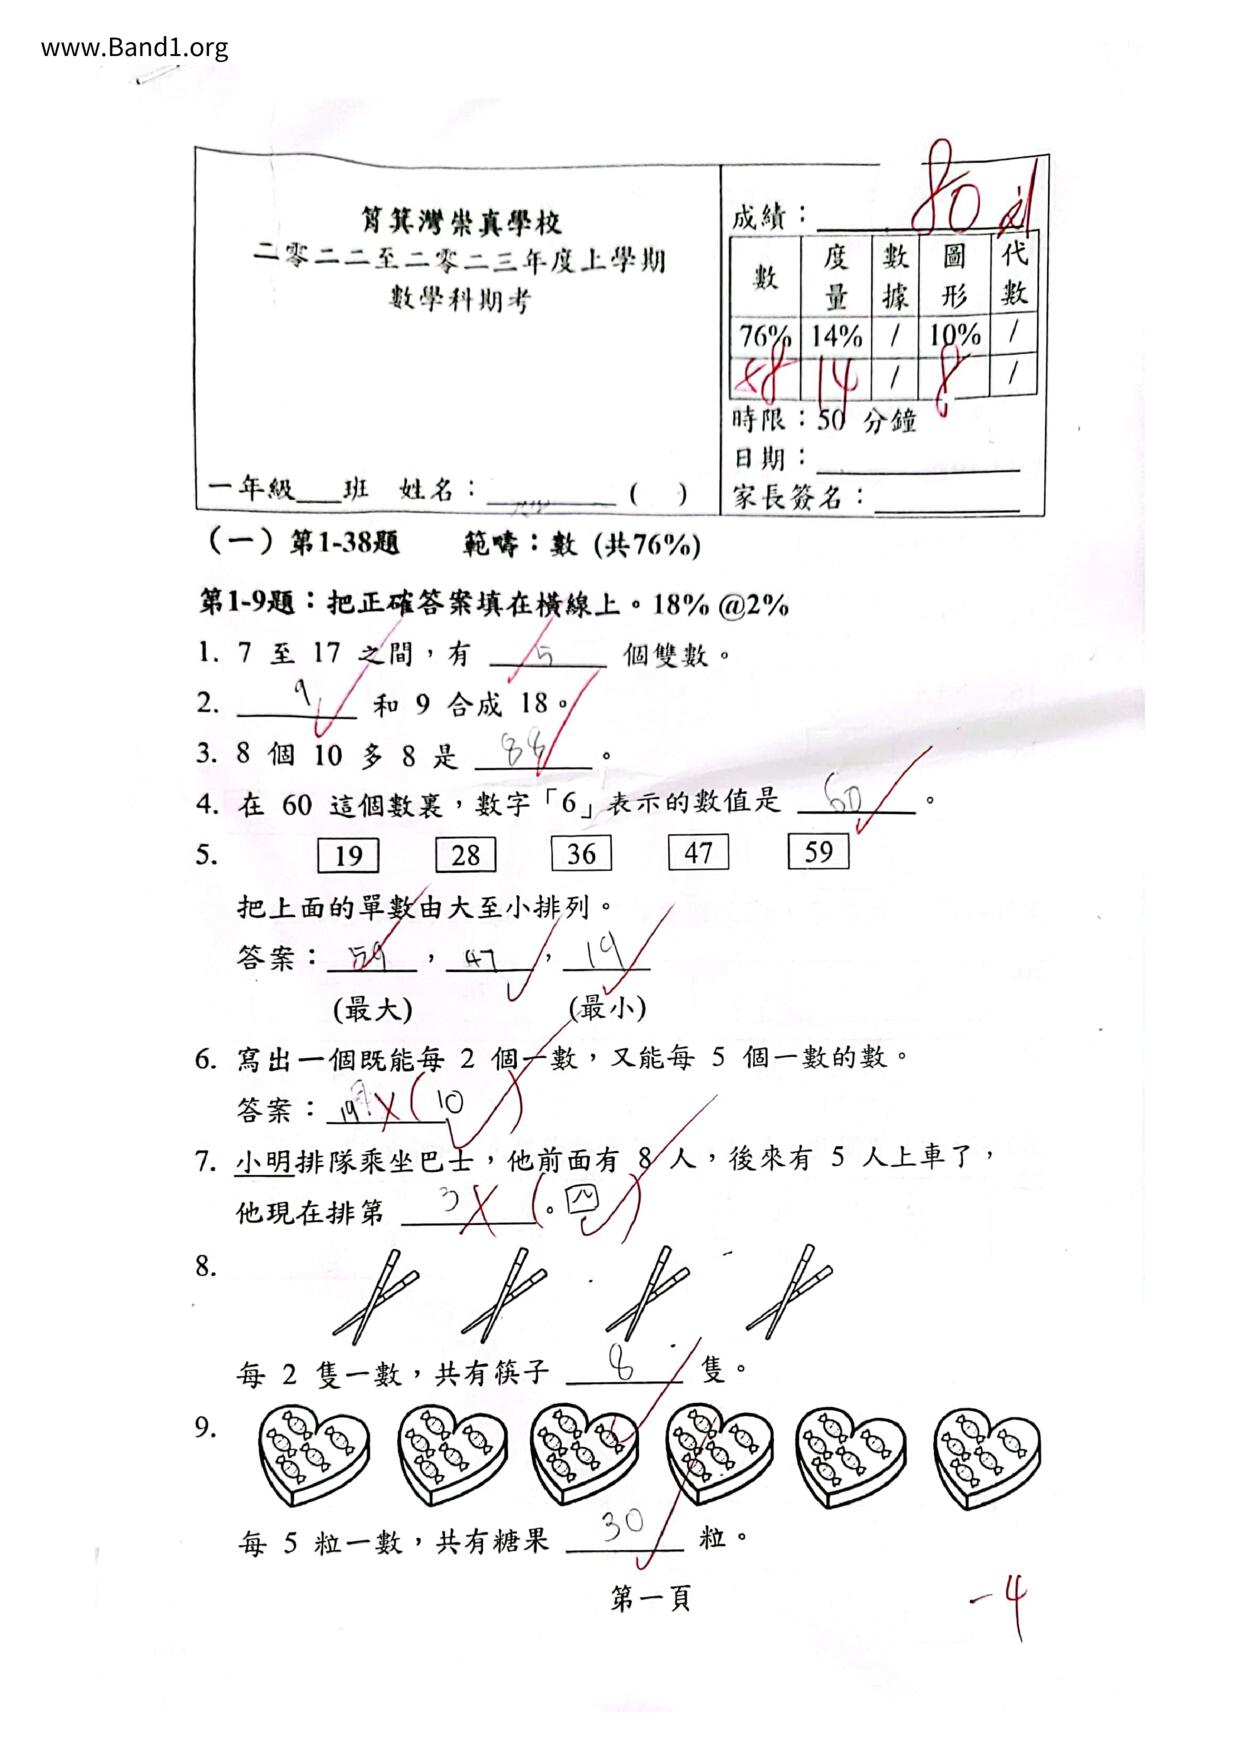 www.Band1.org
筲箕灣崇真學校
二零二二至二零二三年度上學期
數學科期考
一年級___班 姓名：________ ( )
成績：80
數 度量 數據 圖形 代數
76% 14% / 10% /
58 14 / 8 /
時限：50 分鐘
日期：
家長簽名：
（一）第1-38題 範疇：數 (共76%)
第1-9題：把正確答案填在橫線上。18% @2%
1. 7 至 17 之間，有 5 個雙數。
2. 9 和 9 合成 18。
3. 8 個 10 多 8 是 88 。
4. 在 60 這個數裏，數字「6」表示的數值是 60 。
5. 19 28 36 47 59
把上面的單數由大至小排列。
答案：59，47，19
(最大) (最小)
6. 寫出一個既能每 2 個一數，又能每 5 個一數的數。
答案：19 (10)
7. 小明排隊乘坐巴士，他前面有 8 人，後來有 5 人上車了，
他現在排第 3 。(四)
8.
每 2 隻一數，共有筷子 8 隻。
9.
每 5 粒一數，共有糖果 30 粒。
第一頁
-4